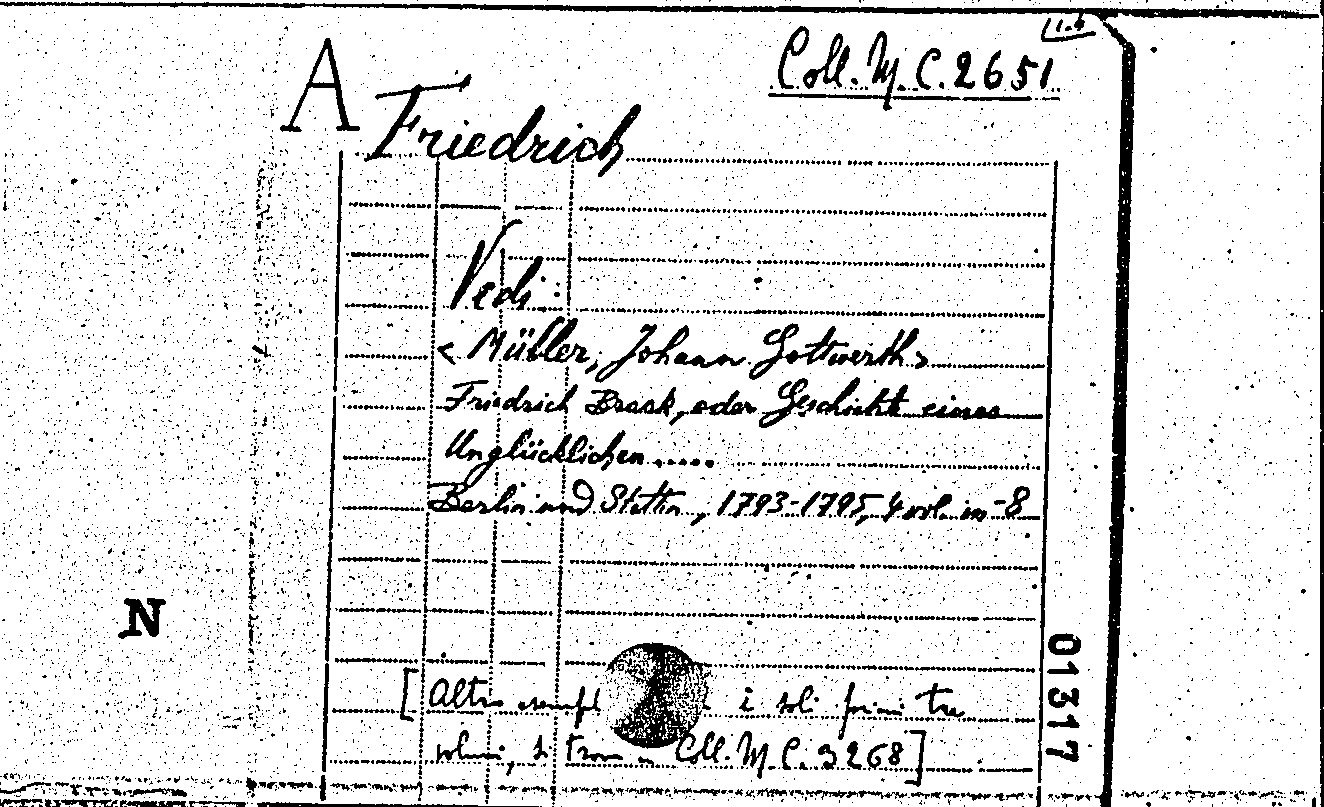 Coll. M. C. 2651
A Friedrich
Vedi:
< Müller, Johann Gottwerth >
Friedrich Brack, oder Geschichte eines
Unglücklichen.....
Berlin und Stettin, 1793-1795, 4 vol. in-8
N
[Altro i soli primi tre
volumi, si trova in Coll. M. C. 3268]
01317